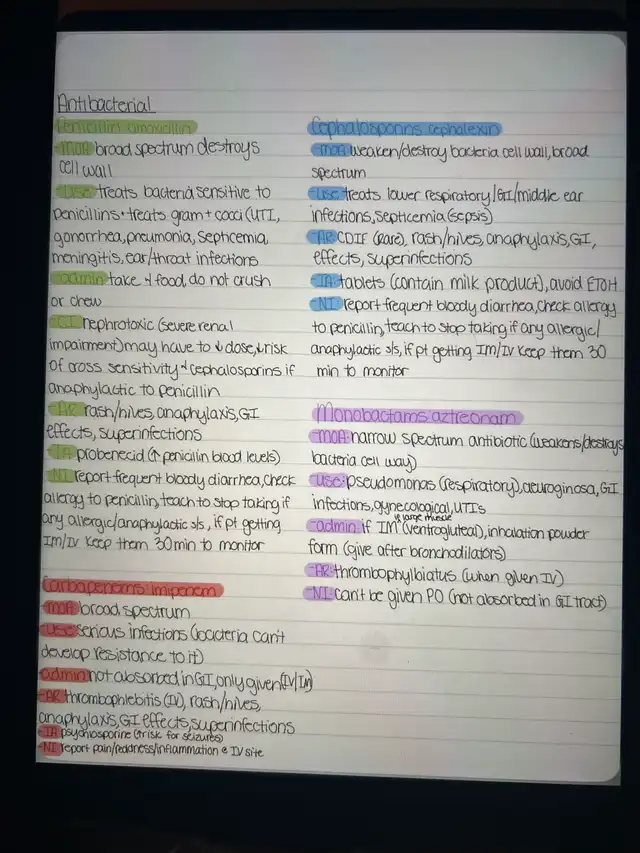 Antibacterial
Penicillin amoxicillin
-MOA broad spectrum destroys
cell wall
-Use treats bacteria sensitive to
penicillins • treats gram + cocci (UTI,
gonorrhea, pneumonia, septicemia,
meningitis, ear/throat infections
-admin take w/ food, do not crush
or chew
-CI nephrotoxic (severe renal
impairment) may have to ↓ dose, ↓ risk
of cross sensitivity w/ cephalosporins if
anaphylactic to penicillin
-AR rash/hives, anaphylaxis, GI
effects, superinfections
-IA probenecid (↑ penicilin blood levels)
-NI report frequent bloody diarrhea, check
allergy to penicillin, teach to stop taking if
any allergic/anaphylactic s/s, if pt getting
IM/IV keep them 30 min to monitor
Carbapenems imipenem
-MOA broad spectrum
-Use serious infections (bacteria can't
develop resistance to it)
-admin not absorbed in GI, only given (IV/IM)
-AR thrombophlebitis (IV), rash/hives,
anaphylaxis, GI effects, superinfections
-IA psychlosporine (↑ risk for seizures)
-NI report pain/redness/inflammation @ IV site
Cephalosporins cephalexin
-MOA weaken/destroy bacteria cell wall, broad
spectrum
-Use treats lower respiratory/GI/middle ear
infections, septicemia (sepsis)
-AR CDIF (rare), rash/hives, anaphylaxis, GI,
effects, superinfections
-IA tablets (contain milk product), avoid ETOH
-NI report frequent bloody diarrhea, check allergy
to penicillin, teach to stop taking if any allergic/
anaphylactic s/s, if pt getting IM/IV keep them 30
min to monitor
Monobactams aztreonam
-MOA: narrow spectrum antibiotic (weakens/destroys
bacteria cell way)
-Use: pseudomonas (respiratory), aeuroginosa, GI
infections, gynecological, UTIs
in large muscle
-admin: if IM (ventrogluteal), inhalation powder
form (give after bronchodilators)
-AR: thrombophylbiatus (when given IV)
-NI: can't be given PO (not absorbed in GI tract)